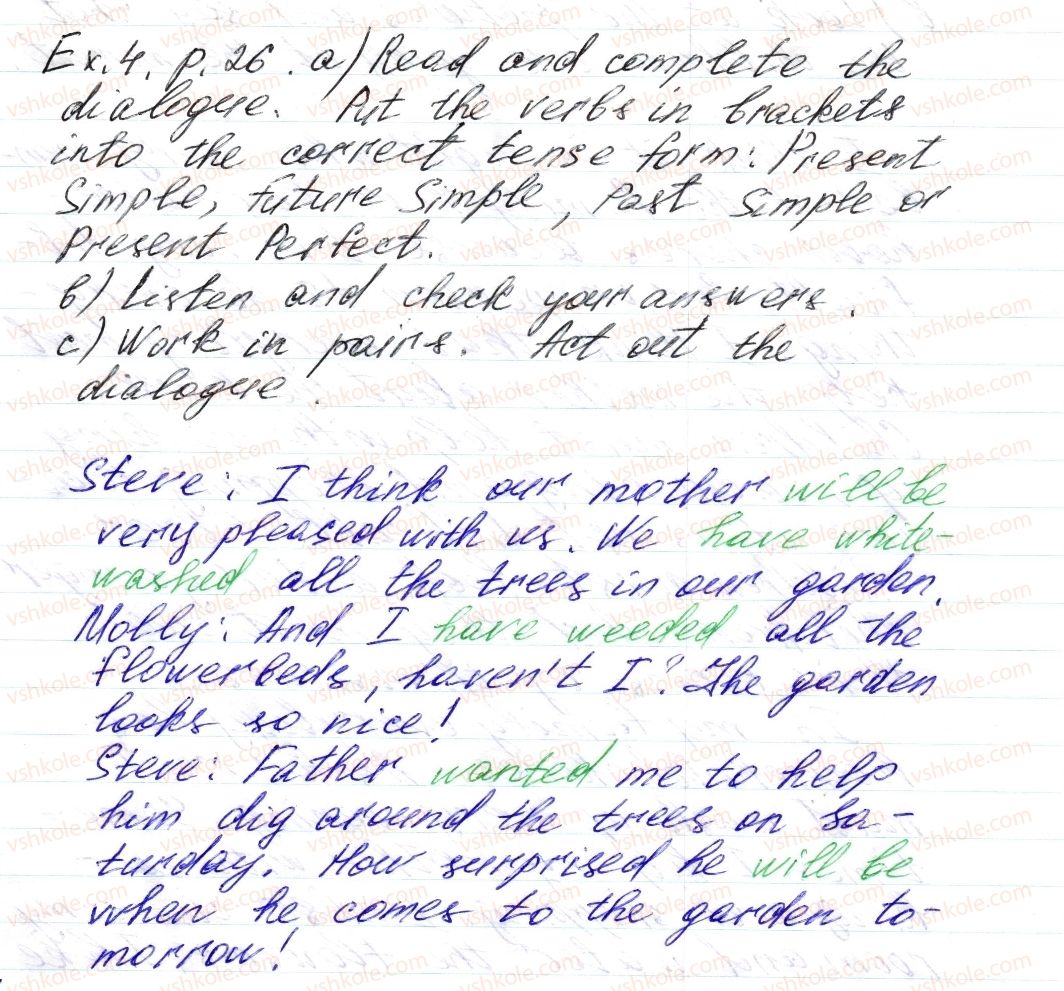 Ex. 4. p. 26. a) Read and complete the
dialogue. Put the verbs in brackets
into the correct tense form: Present
Simple, Future Simple, Past Simple or
Present Perfect.
b) Listen and check your answers.
c) Work in pairs. Act out the
dialogue.
Steve: I think our mother will be
very pleased with us. We have white-
washed all the trees in our garden.
Molly: And I have weeded all the
flowerbeds, haven't I? The garden
looks so nice!
Steve: Father wanted me to help
him dig around the trees on Sa-
turday. How surprised he will be
when he comes to the garden to-
morrow!